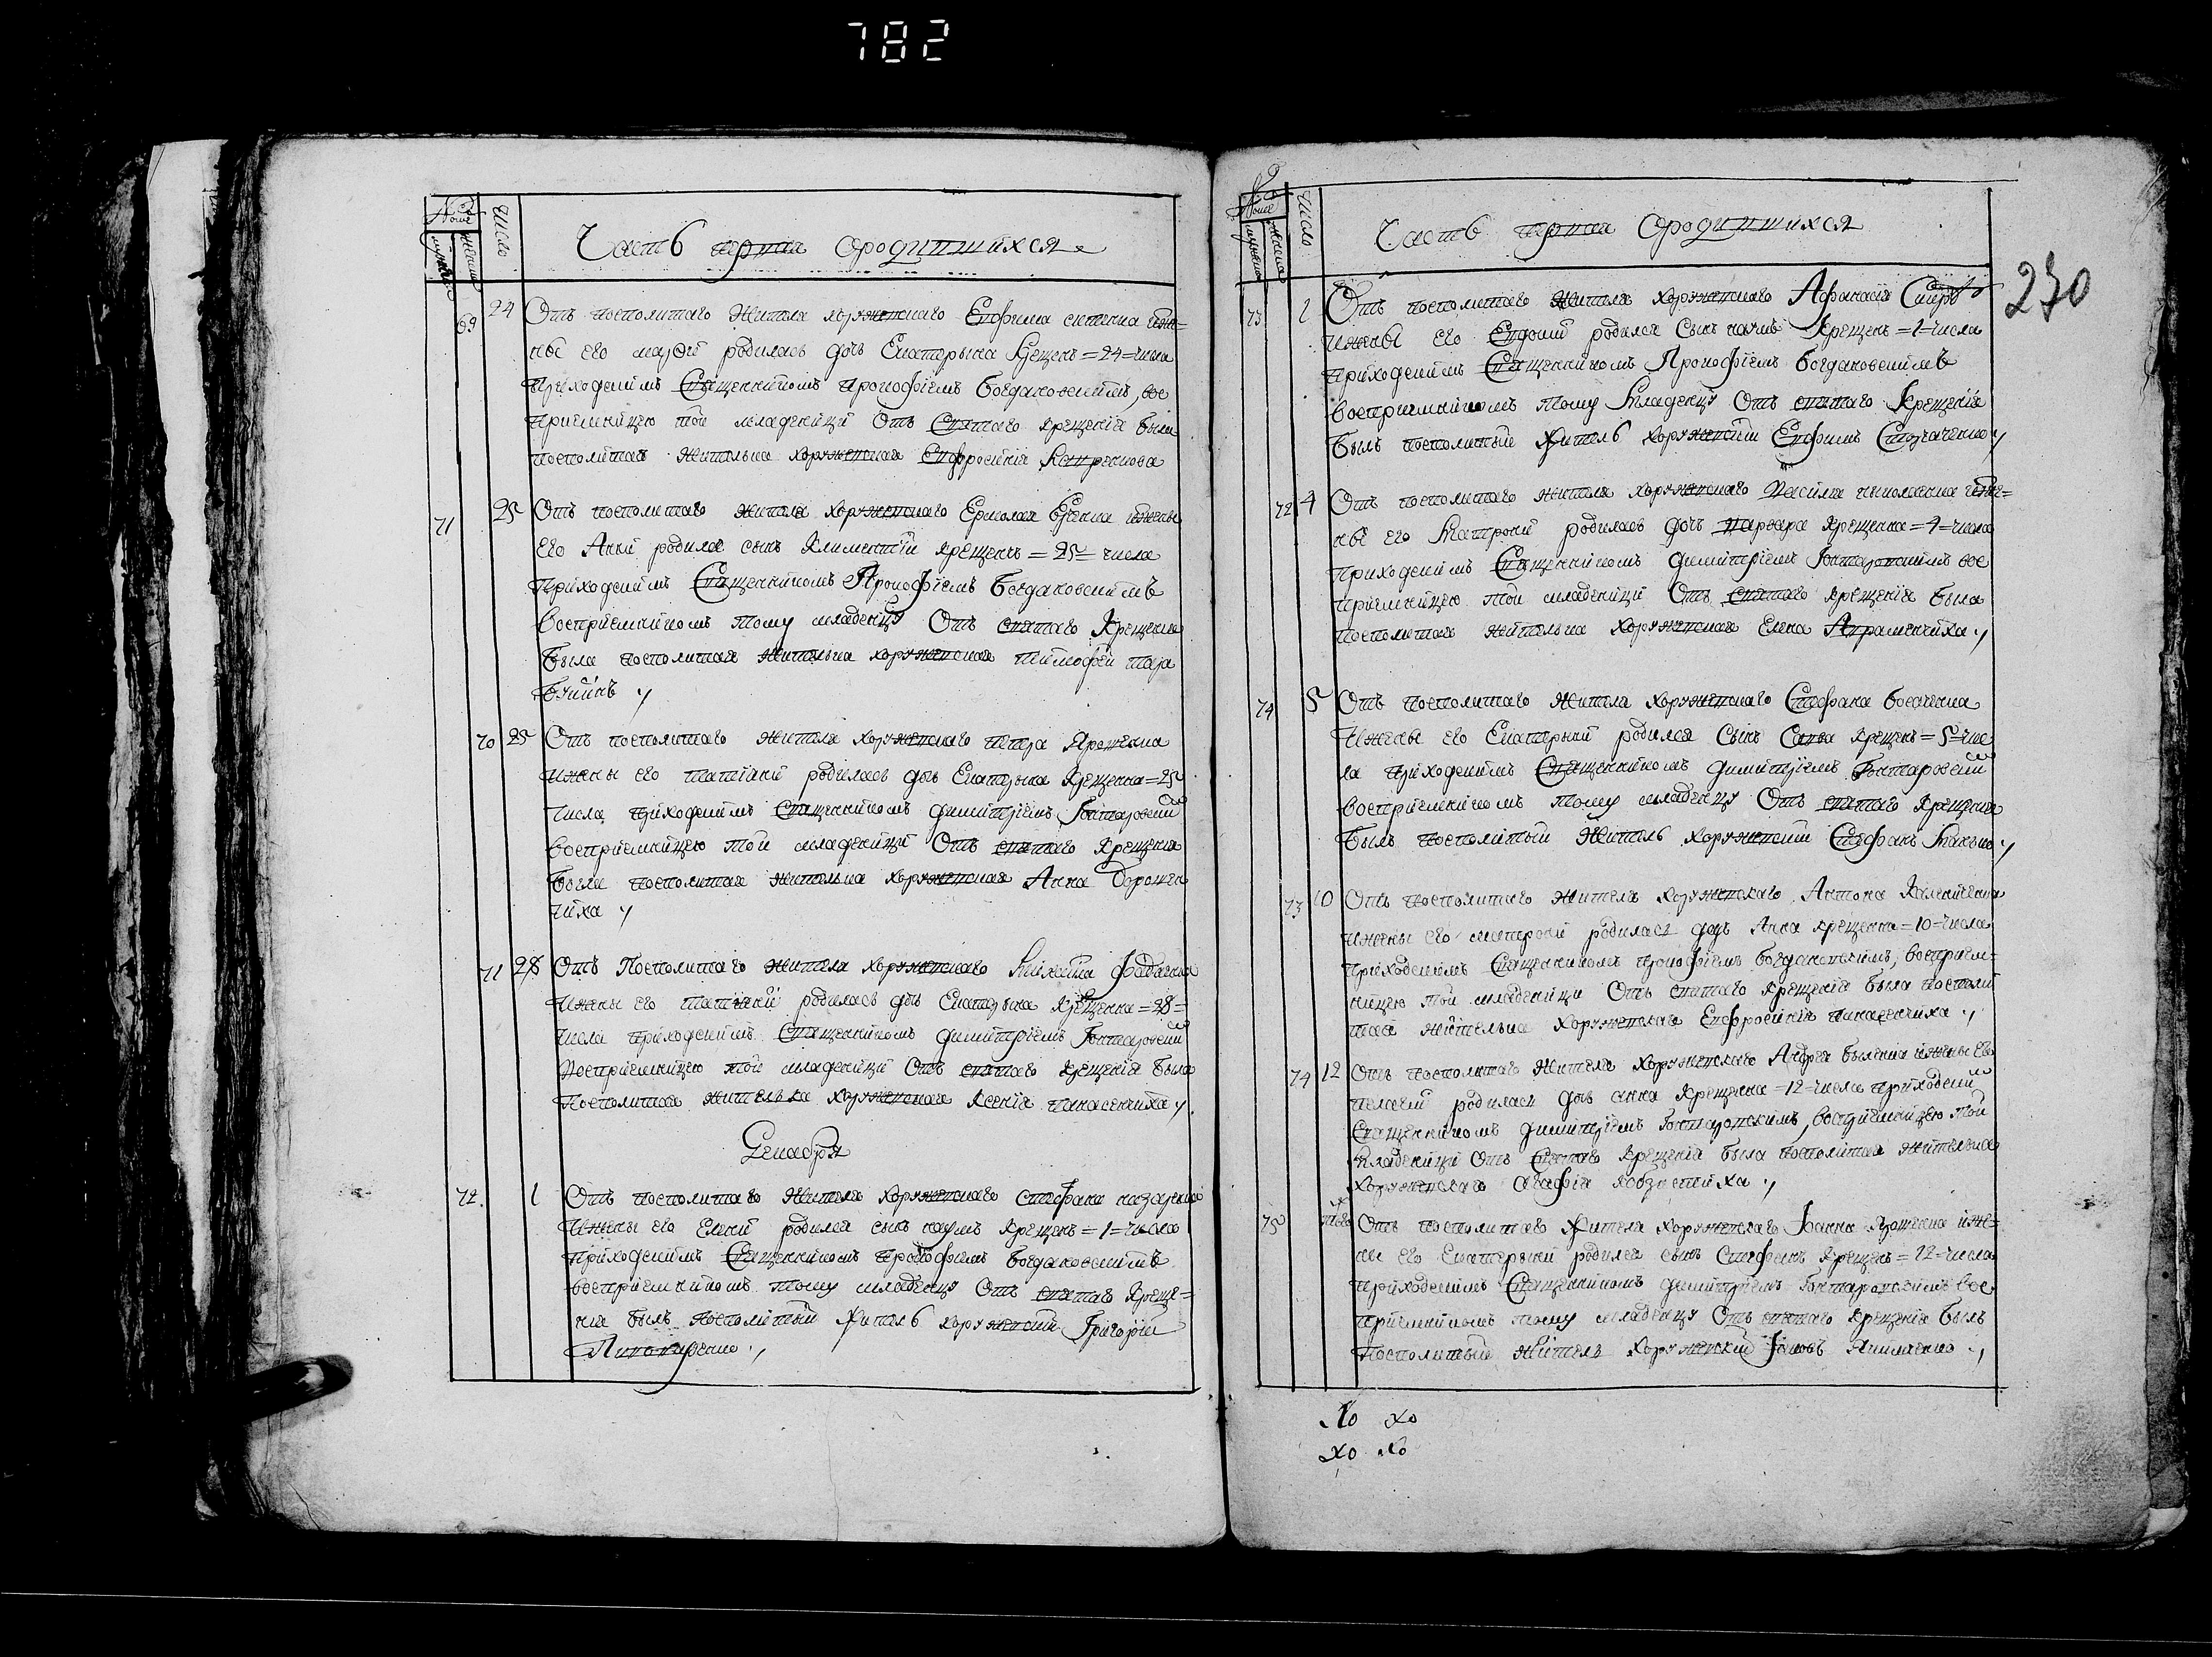 782
№
Число
Часть первая ородившихся
69 24 Отъ посполитаго жителя хоружевскаго Евфима
ны его марѳи родилась дочь Екатерына Крещенъ =24= числа
приходскимъ Священникомъ прокофіемъ богдановскимъ, вос
приемницею той младеници Отъ Святаго крещенія была
посполитая жителька хоружевская Евфросинія
71 25 Отъ посполитаго жителя хоружевскаго Ермолая ижены
Его Анни родился сынъ Климентій крещенъ =25= числа
приходскимъ Священникомъ Прокофіемъ Богдановскимъ
Восприемникомъ тому младенцу Отъ святаго Крещенія
была посполитая жителька хоружевская тимофей
70 25 Отъ посполитаго жителя хоружевскаго петра Ярошенка
ижены его татіяни родилась дочь Екатерына крещенна =25
числа приходскимъ Священникомъ димитріемъ Гонтаровский
восприемницею той младеници Отъ святаго крещенія
была посполитая жителька хоружевская Анна Дорошен
чиха
71 28 Отъ Посполитаго жителя хоружевскаго
ижены его татіяни родилась дочь Екатерына крещенна =28=
числа приходскимъ Священникомъ димитріемъ Гонтаровский
Восприемницею той младеници Отъ святаго крещенія была
Посполитая жителька хоружевская Ксенія панасенчиха
Декабря
72 1 Отъ посполитаго жителя хоружевскаго стефана назаренка
ижены его Елены родился сынъ наумъ крещенъ =1= числа
приходскимъ Священникомъ прокофіемъ богдановскимъ
восприемникомъ тому младенцу Отъ святаго Креще=
нія былъ посполитый житель хоружевский Григорій
230
№
Число
Часть первая ородившихся
73 1 Отъ посполитаго жителя хоружевскаго Афанасія
ижены его Евдокии родился Сынъ наумъ Крещенъ =1= числа
приходскимъ Священникомъ Прокофіемъ Богдановскимъ
восприемникомъ тому Младенцу Отъ святаго Крещенія
былъ посполитый житель хоружевский Евфимъ
72 4 Отъ посполитаго жителя хоружевскаго Василя ижe=
ны его Матрони родилась дочь варвара крещенна =4= числа
приходскимъ Священникомъ димитріемъ Гонтаровскимъ вос
приемницею той младеници Отъ святаго крещенія была
посполитая жителька хоружевская Елена
74 5 Отъ посполитаго жителя хоружевскаго Стефана
ижены его Екатерыни родился Сынъ Савва крещенъ =5= чис
ла приходскимъ Священникомъ димитріемъ Гонтаровский
восприемникомъ тому младенцу Отъ святаго крещенія
былъ посполитый житель хоружевский Стефанъ
73 10 Отъ посполитаго жителя хоружевскаго Антона
ижены его матрони родилась дочь Анна крещенна =10= числа
приходскимъ Священникомъ прокофіемъ богдановскимъ, восприем=
ницею той младеници Отъ святаго крещенія была посполи
тая жителька хоружевская Евфросинія панасенчиха
74 12 Отъ посполитаго жителя хоружевскаго Андрея ижены Его
родилась дочь анна крещенна =12= числа приходский
Священникомъ димитріемъ Гонтаровскимъ, восприемницею той
Младеници Отъ Святаго крещенія была посполитая жителька
хоружевскаго Агафія
75 Отъ посполитаго жителя хоружевскаго Іоанна Ярошенка иже=
ны его Екатерыни родился сынъ Стефанъ крещенъ =12= числа
приходскимъ Священникомъ димитріемъ Гонтаровскимъ вос
приемникомъ тому младенцу Отъ святаго крещенія былъ
посполитый житель хоружевский Іаковъ
Хо хо
хо хо